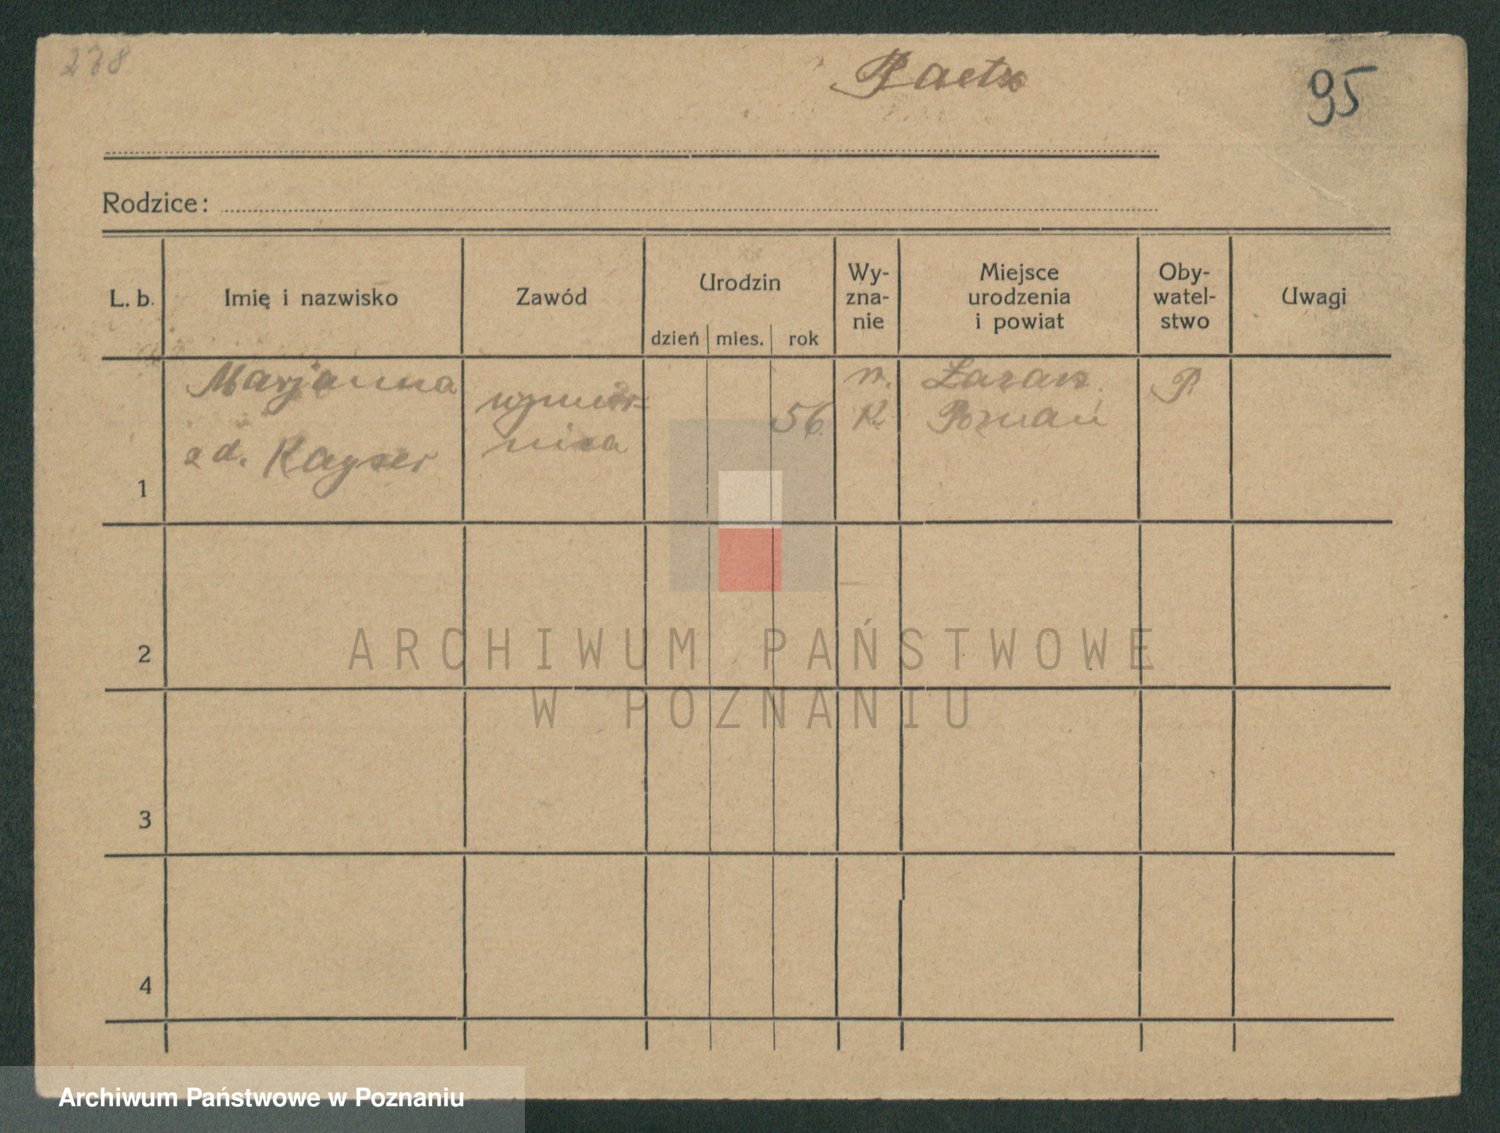 278
Paetz
95
Rodzice:
L. b. Imię i nazwisko Zawód Urodzin Wy-zna-nie Miejsce urodzenia i powiat Oby-watel-stwo Uwagi
dzień mies. rok
Marjanna
r.
Łazarz
P
56
K.
Poznań
zd. Kayser
1
2
3
4
ARCHIWUM PAŃSTWOWE
W POZNANIU
Archiwum Państwowe w Poznaniu